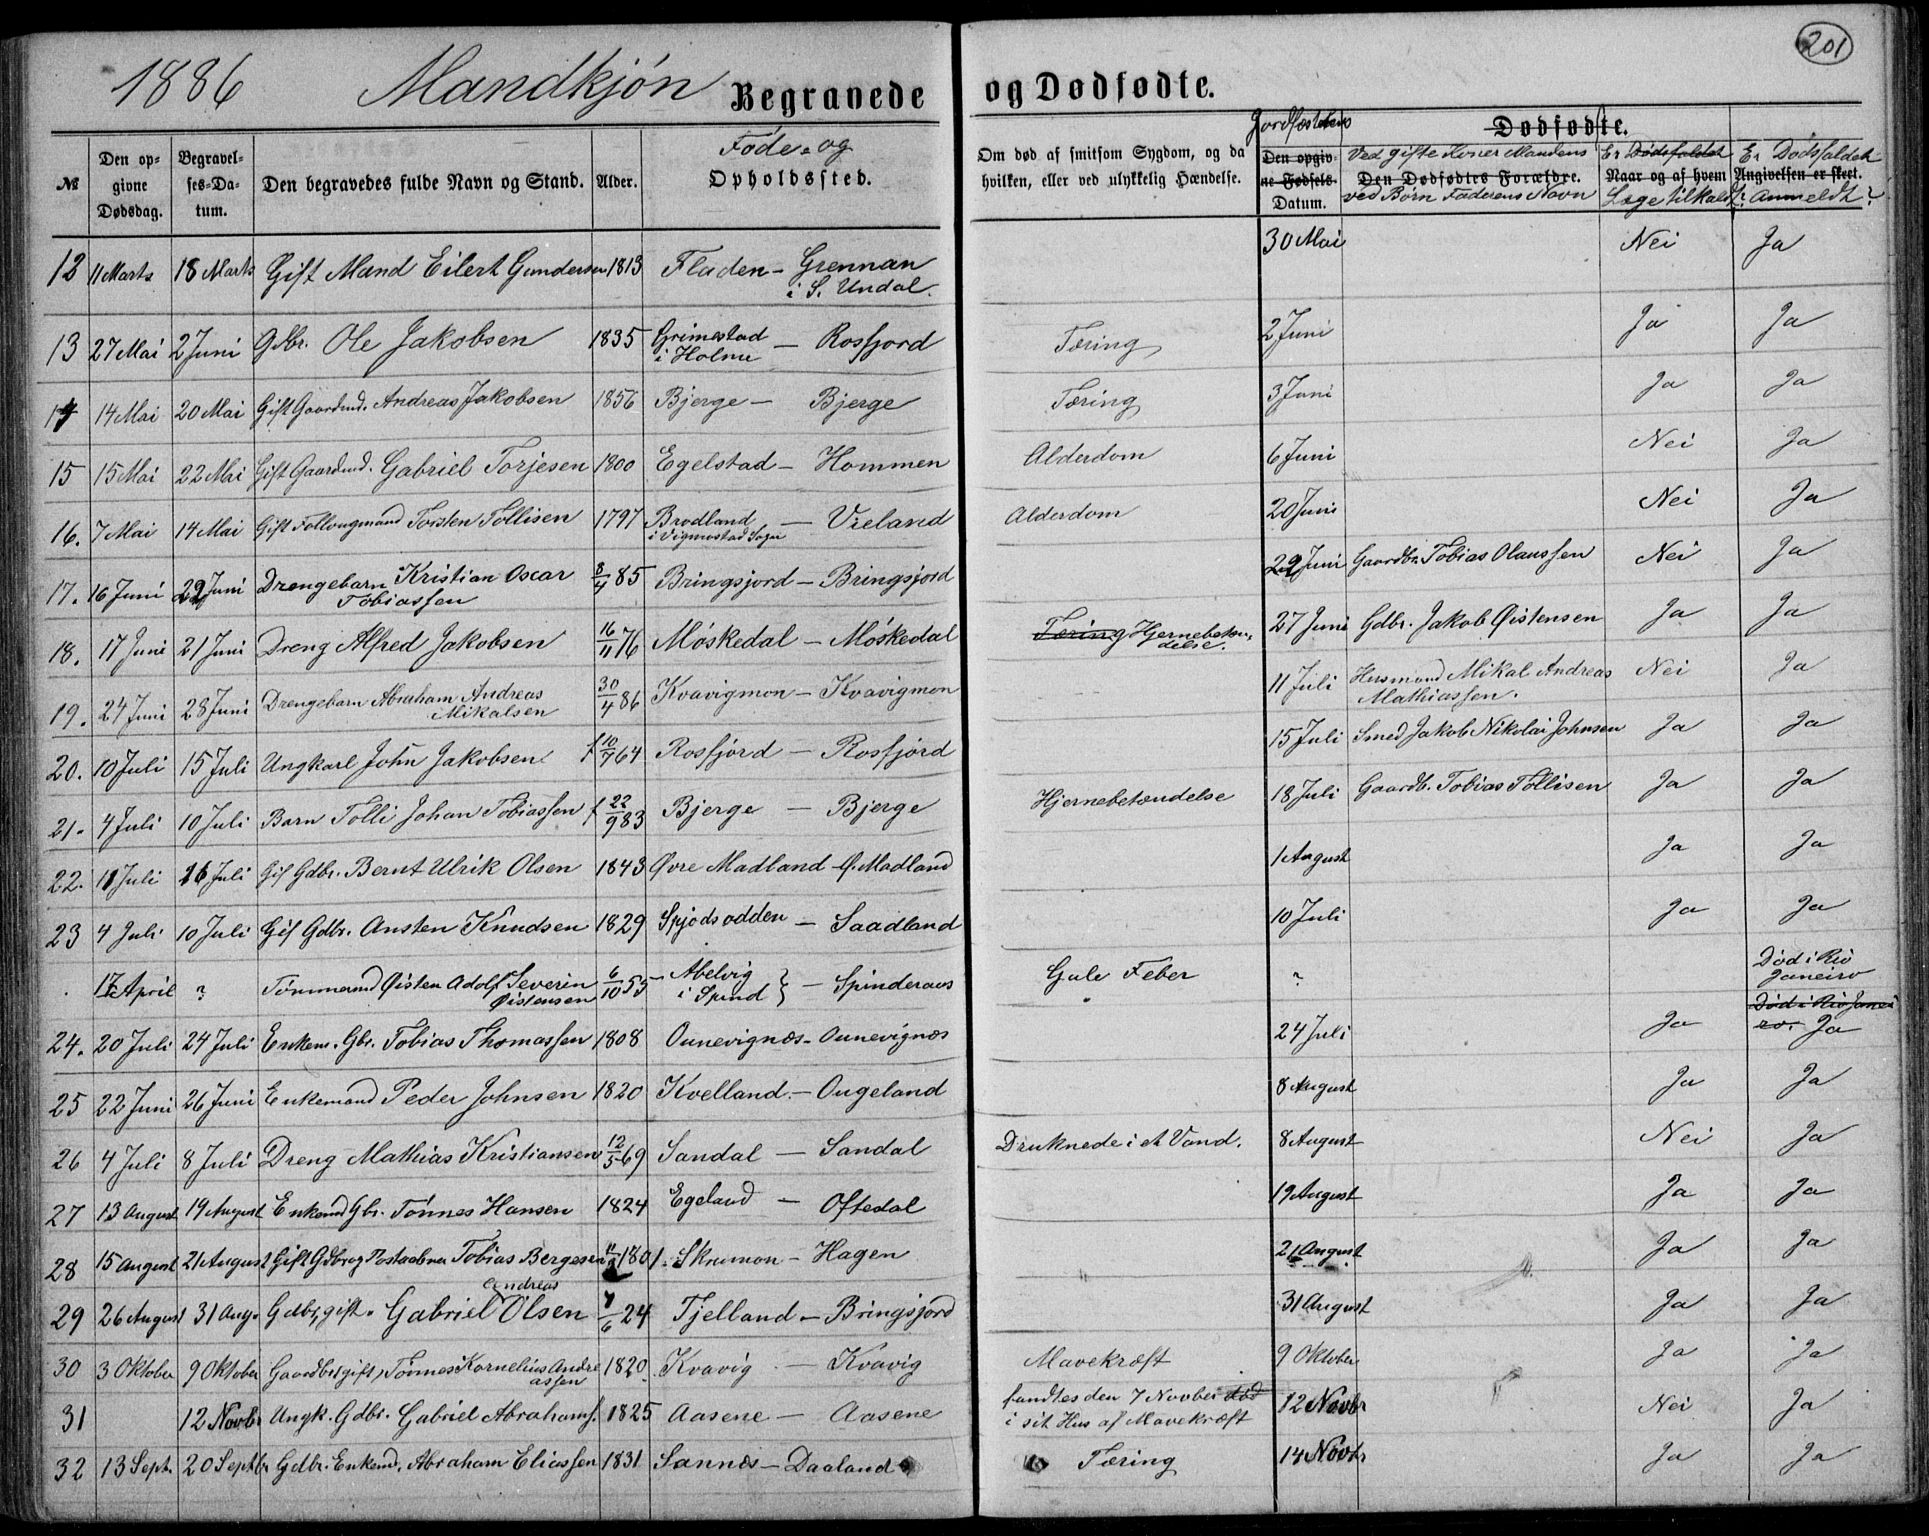 201
1886 Mandkjön Begravede og Dødfødte.
№
Den opgivne Dødsdag.
Begravelses-Datum.
Den begravedes fulde Navn og Stand.
Alder.
Føde- og Opholdssted.
Om død af smitsom Sygdom, og da hvilken, eller ved ulykkelig Hændelse.
Jordfæstelsens
Den opgivne Fødsels-Datum.
Dødfødte.
Ved gifte Koner Mandens
Den Dødfødtes Forældre.
ved Børn Faderens Navn
Er Dødsfaldet
Naar og af hvem
Læge tilkaldt?
Er Dødsfaldet
Angivelsen er skeet.
anmeldt?
12 11 Marts 18 Marts Gift Mand Eilert Gundersen 1813 Fladen - Grennan i S. Undal. 30 Mai Nei Ja
13 27 Mai 2 Juni Gdbr. Ole Jakobsen 1835 Grimestad i Holme - Rosfjord Tæring 2 Juni Ja Ja
14 14 Mai 20 Mai Gift Gaardmd. Andreas Jakobsen 1856 Bjerge - Bjerge Tæring 3 Juni Ja Ja
15 15 Mai 22 Mai Gift Gaardmd. Gabriel Torjesen 1800 Egelstad - Hommen Alderdom 6 Juni Nei Ja
16. 7 Mai 14 Mai Gift Follougmand Torsten Tollisen 1797 Brodland i Vigmostad Sogn - Vreland Alderdom 20 Juni Nei Ja
17. 16 Juni 22 Juni Drengebarn Kristian Oscar Tobiassen 8/4 85 Bringsjord - Bringsjord 29 Juni Gaardbr. Tobias Olaussen Nei Ja
18. 17 Juni 21 Juni Dreng Alfred Jakobsen 16/11 76 Möskedal - Möskedal Tæring Hjernebetændelse. 27 Juni Gdbr. Jakob Øistensen Ja Ja
19. 24 Juni 28 Juni Drengebarn Abraham Andreas Mikalsen 30/4 86 Kvavigmon - Kvavigmon 11 Juli Husmand Mikal Andreas Mathiassen. Nei Ja
20. 10 Juli 15 Juli Ungkarl John Jakobsen f 10/9 64 Rosfjörd - Rosfjörd 15 Juli Smed Jakob Nikolai Johnsen Ja Ja
21. 4 Juli 10 Juli Barn Tolli Johan Tobiassen f 22/9 83 Bjerge - Bjerge Hjernebetændelse 18 Juli Gaardb. Tobias Tollisen Ja Ja
22. 11 Juli 16 Juli Gif Gdbr. Bernt Ulrik Olsen 1843 Øvre Madland - Ø. Madland 1 August Ja Ja
23 4 Juli 10 Juli Gif Gdbr. Ansten Knudsen 1829 Spjodsodden - Saadland 10 Juli Ja Ja
17 April ? Tömmermd Øisten Adolf Severin Øistensen 6/10 55 - Abelvig i Spind } - Spinderaus Gule Feber ? Död i Rio Janeiro
24. 20 Juli 24 Juli Enkem. Gbr. Tobias Thomassen 1808 Ounevignæs - Ounevignæs 24 Juli Ja Död i Rio Janeiro. Ja
25 22 Juni 26 Juni Enkemand Peder Johnsen 1820 Kvelland - Ougeland 8 August Ja Ja
26 4 Juli 8 Juli Dreng Mathias Kristiansen 12/5 69 Sandal - Sandal Druknede i et Vand. 8 August Nei Ja
27 13 August 19 August Enkemd Gbr. Tönnes Hansen 1824 Egeland - Oftedal 19 August Ja Ja
28 15 August 21 August Gift Gdbr og Postaabner Tobias Bergesen 1801. Skrumon - Hagen 21 August Ja Ja
29 26 August 31 Aug. Gdbr, gift. Gabriel Andreas Olsen 7/6 24 Tjelland - Bringsjord 31 August Ja Ja
30 3 Oktober 9 Oktober Gaardbr gift, Tönnes Kornelius Andreassen 1820 Kvavig - Kvavig Mavekræft 9 Oktober Ja Ja
31 12 Novbr Ungk. Gdbr. Gabriel Abrahams. 1825 Aasene - Aasene fandtes den 7 Novber död i sit Hus af Mavekræft 12 Novbr Nei Ja
32 13 Sept. 20 Septbr Gdbr. Enkemd. Abraham Eliassen 1831 Sannes - Daaland Tæring 14 Novbr Ja Ja